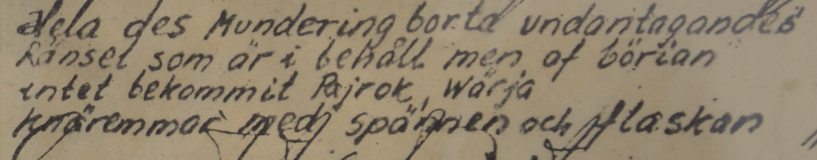 Hela des Mundering borta undantagandes
Ränsel som är i behåll men af börian
intet bekommit Pajrok, Wärja
knäremmar medj spännen och flaskan